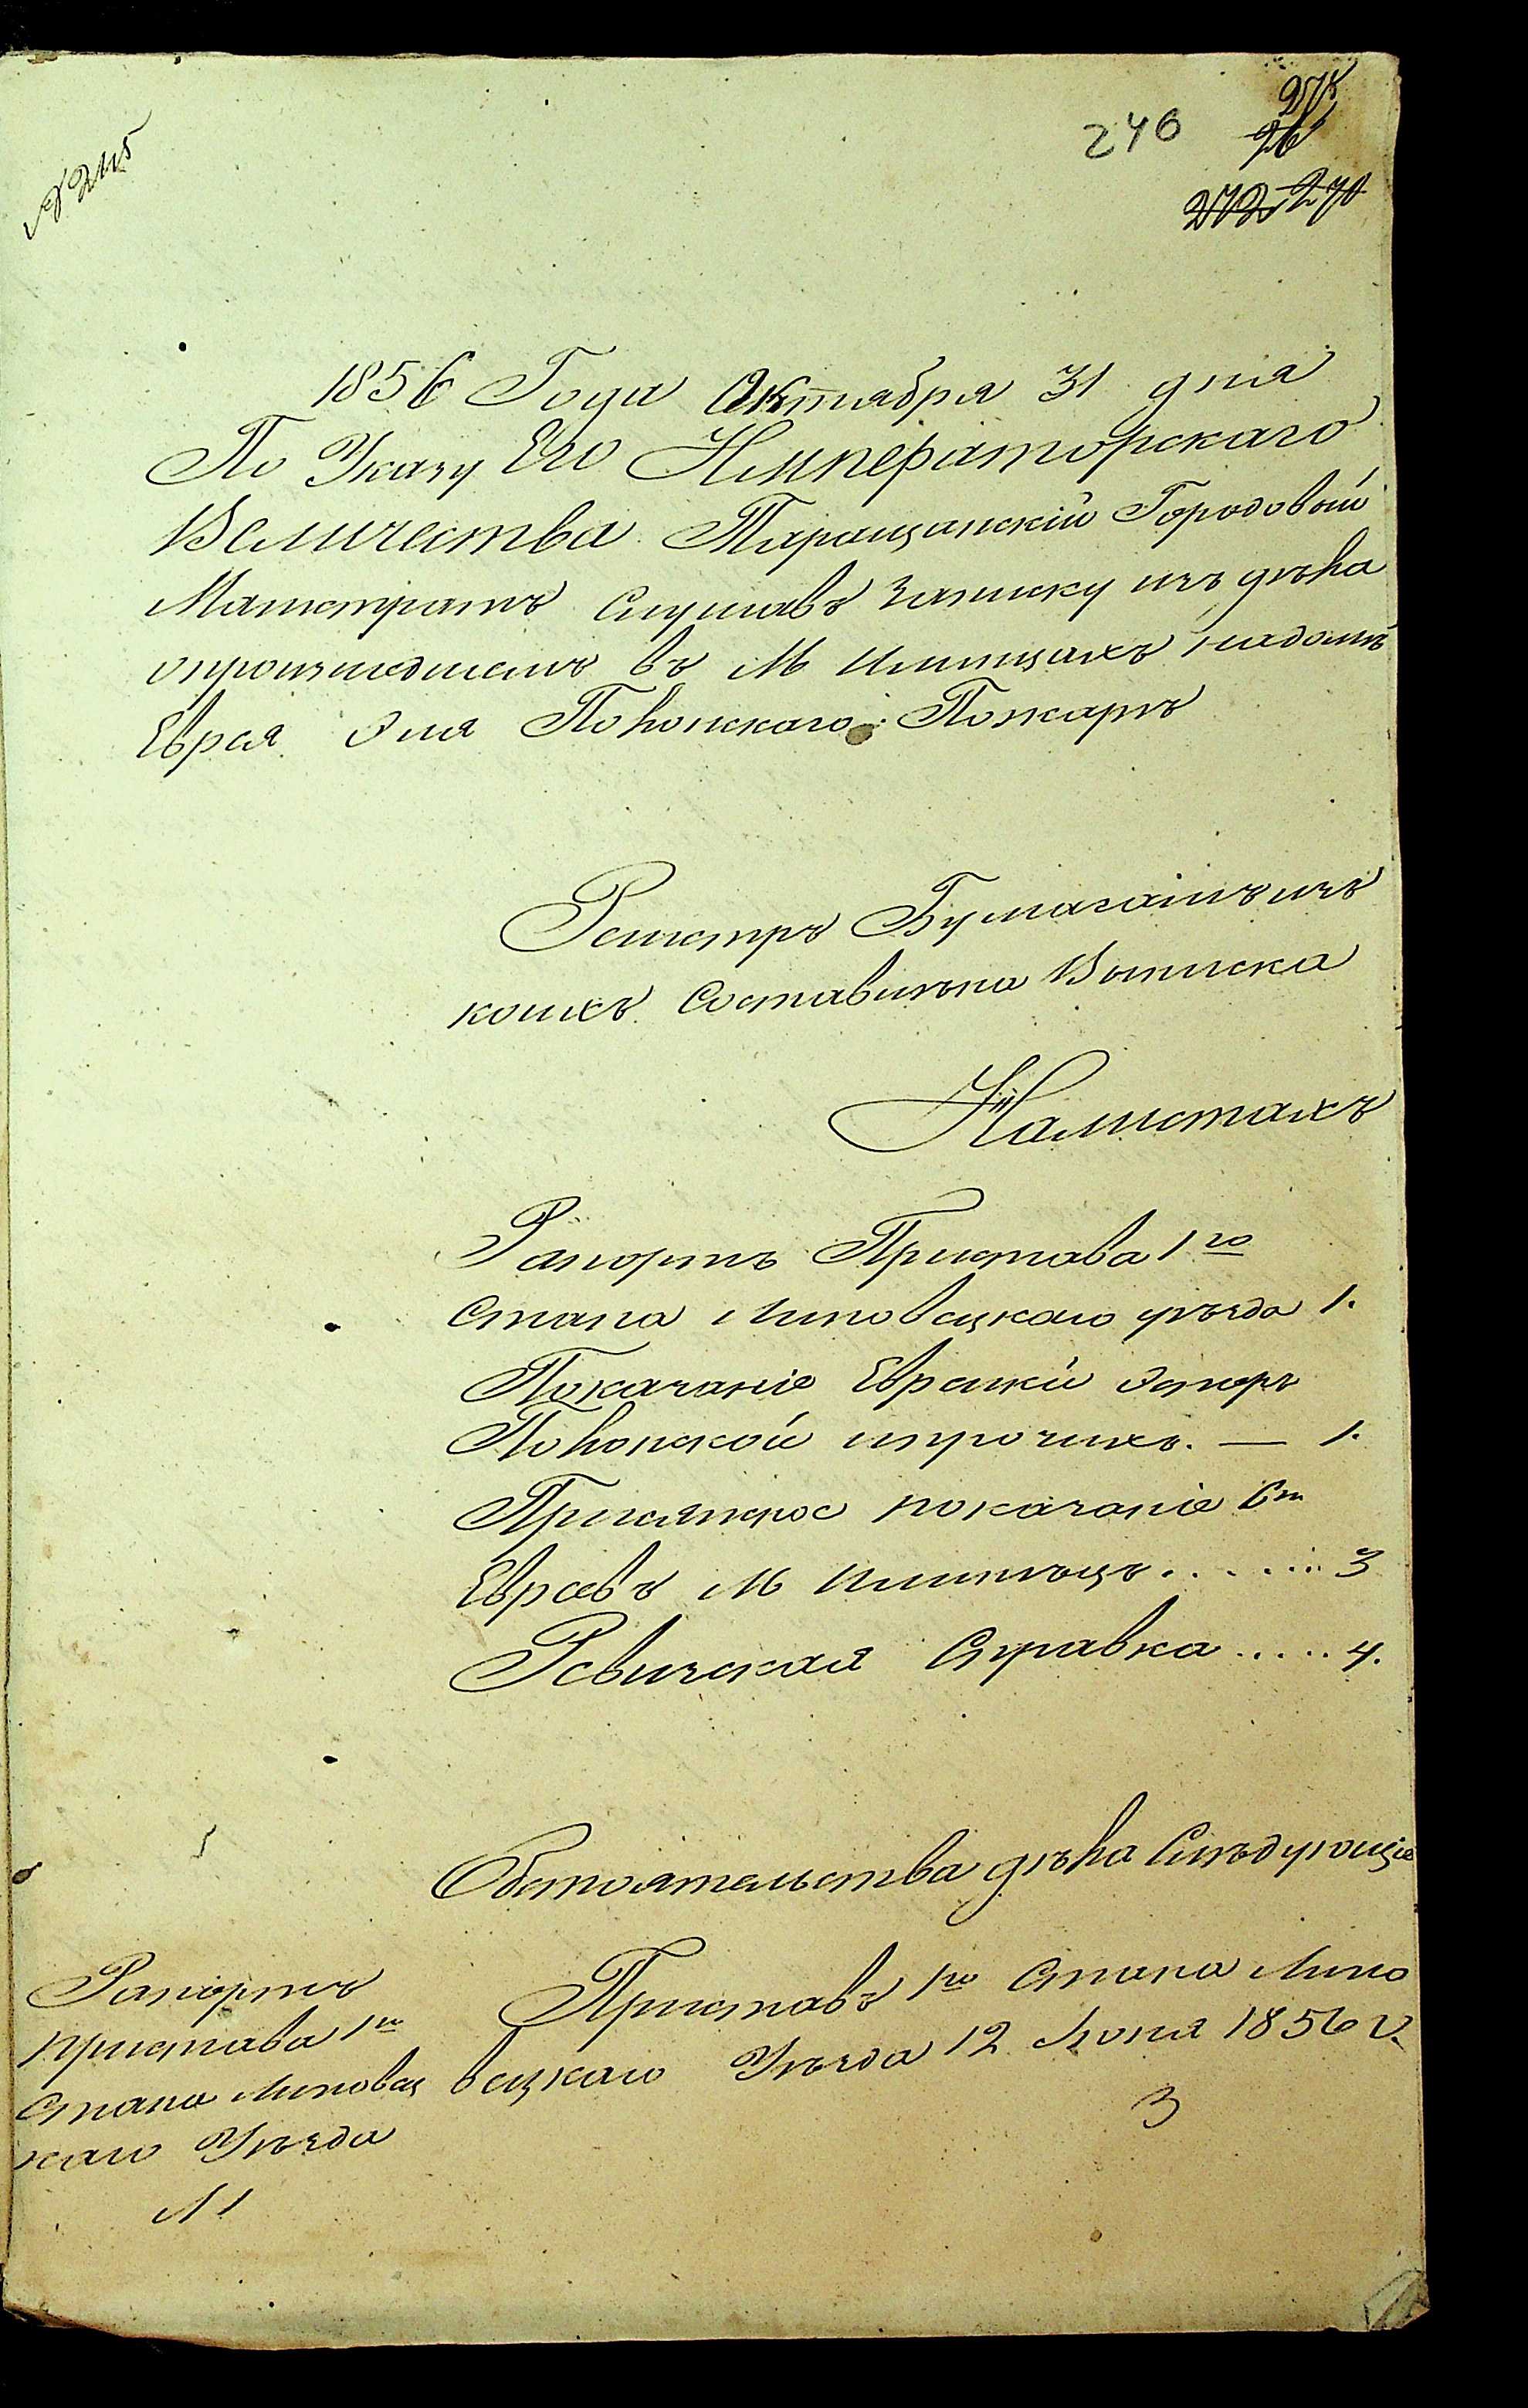 № 2115
246
272 270
1856 Года Октября 31 дня
По Указу Его Императорскаго
Величества Таращанскій Городовый
Магистратъ Слушавъ Записку изъ дѣла
опроизшедшемъ въ М Илинцахъ надомъ
Еврея Эля Полонскаго Пожаръ
Регистръ Бумагамъ изъ
коихъ Составлена Выписка
На листахъ
Рапортъ Пристава 1го
Стана Липовецкаго уѣзда 1.
Показаніе Еврейки Эстеръ
Полонской ипрочихъ. — 1.
Присяжное показаніе Ст
Евреевъ М Илинецъ . . . . . . 3
Ревизская Справка . . . . . 4.
Обстоятельства дѣла Слѣдующіе
Рапортъ
Пристава 1го
Стана Липовец
каго Уѣзда
Л 1
Приставъ 1го Стана Липо
вецкаго Уѣзда 12 Іюня 1856 г.
3